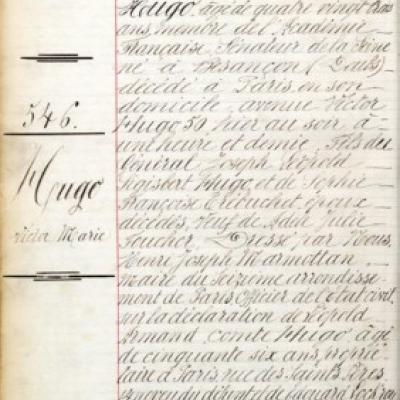 546.
Hugo
Victor Marie
Hugo, âgé de quatre vingt trois
ans, membre de l'Académie
Française, Sénateur de la Seine
né à Besançon (Doubs)
décédé à Paris en son
domicile, avenue Victor
Hugo 50, hier au soir à
une heure et demie, fils du
Général Joseph Léopold
Sigisbert Hugo, et de Sophie
Françoise Trébuchet, époux
décédés, Veuf de Adèle Julie
Foucher. Dressé par Nous,
Henri Joseph Marmottan
maire du Seizième arrondisse-
ment de Paris, Officier de l'état civil,
sur la déclaration de Léopold
Armand, comte Hugo, âgé
de cinquante six ans, proprié-
taire à Paris, rue des Saints Pères
neveu du défunt et de Edouard Lockroy